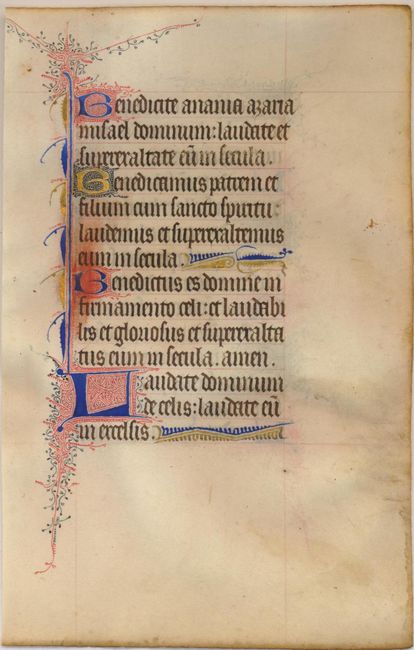 Benedicite anania azaria
misael dominum: laudate et
superexaltate eū in secula.
Benedicamus patrem et
filium cum sancto spiritu:
laudemus et superexaltemus
eum in secula.
Benedictus es domine in
firmamento celi: et laudabi
lis et gloriosus et superexalta
tus eum in secula. amen.
Laudate dominum
de celis: laudate eū
in excelsis.